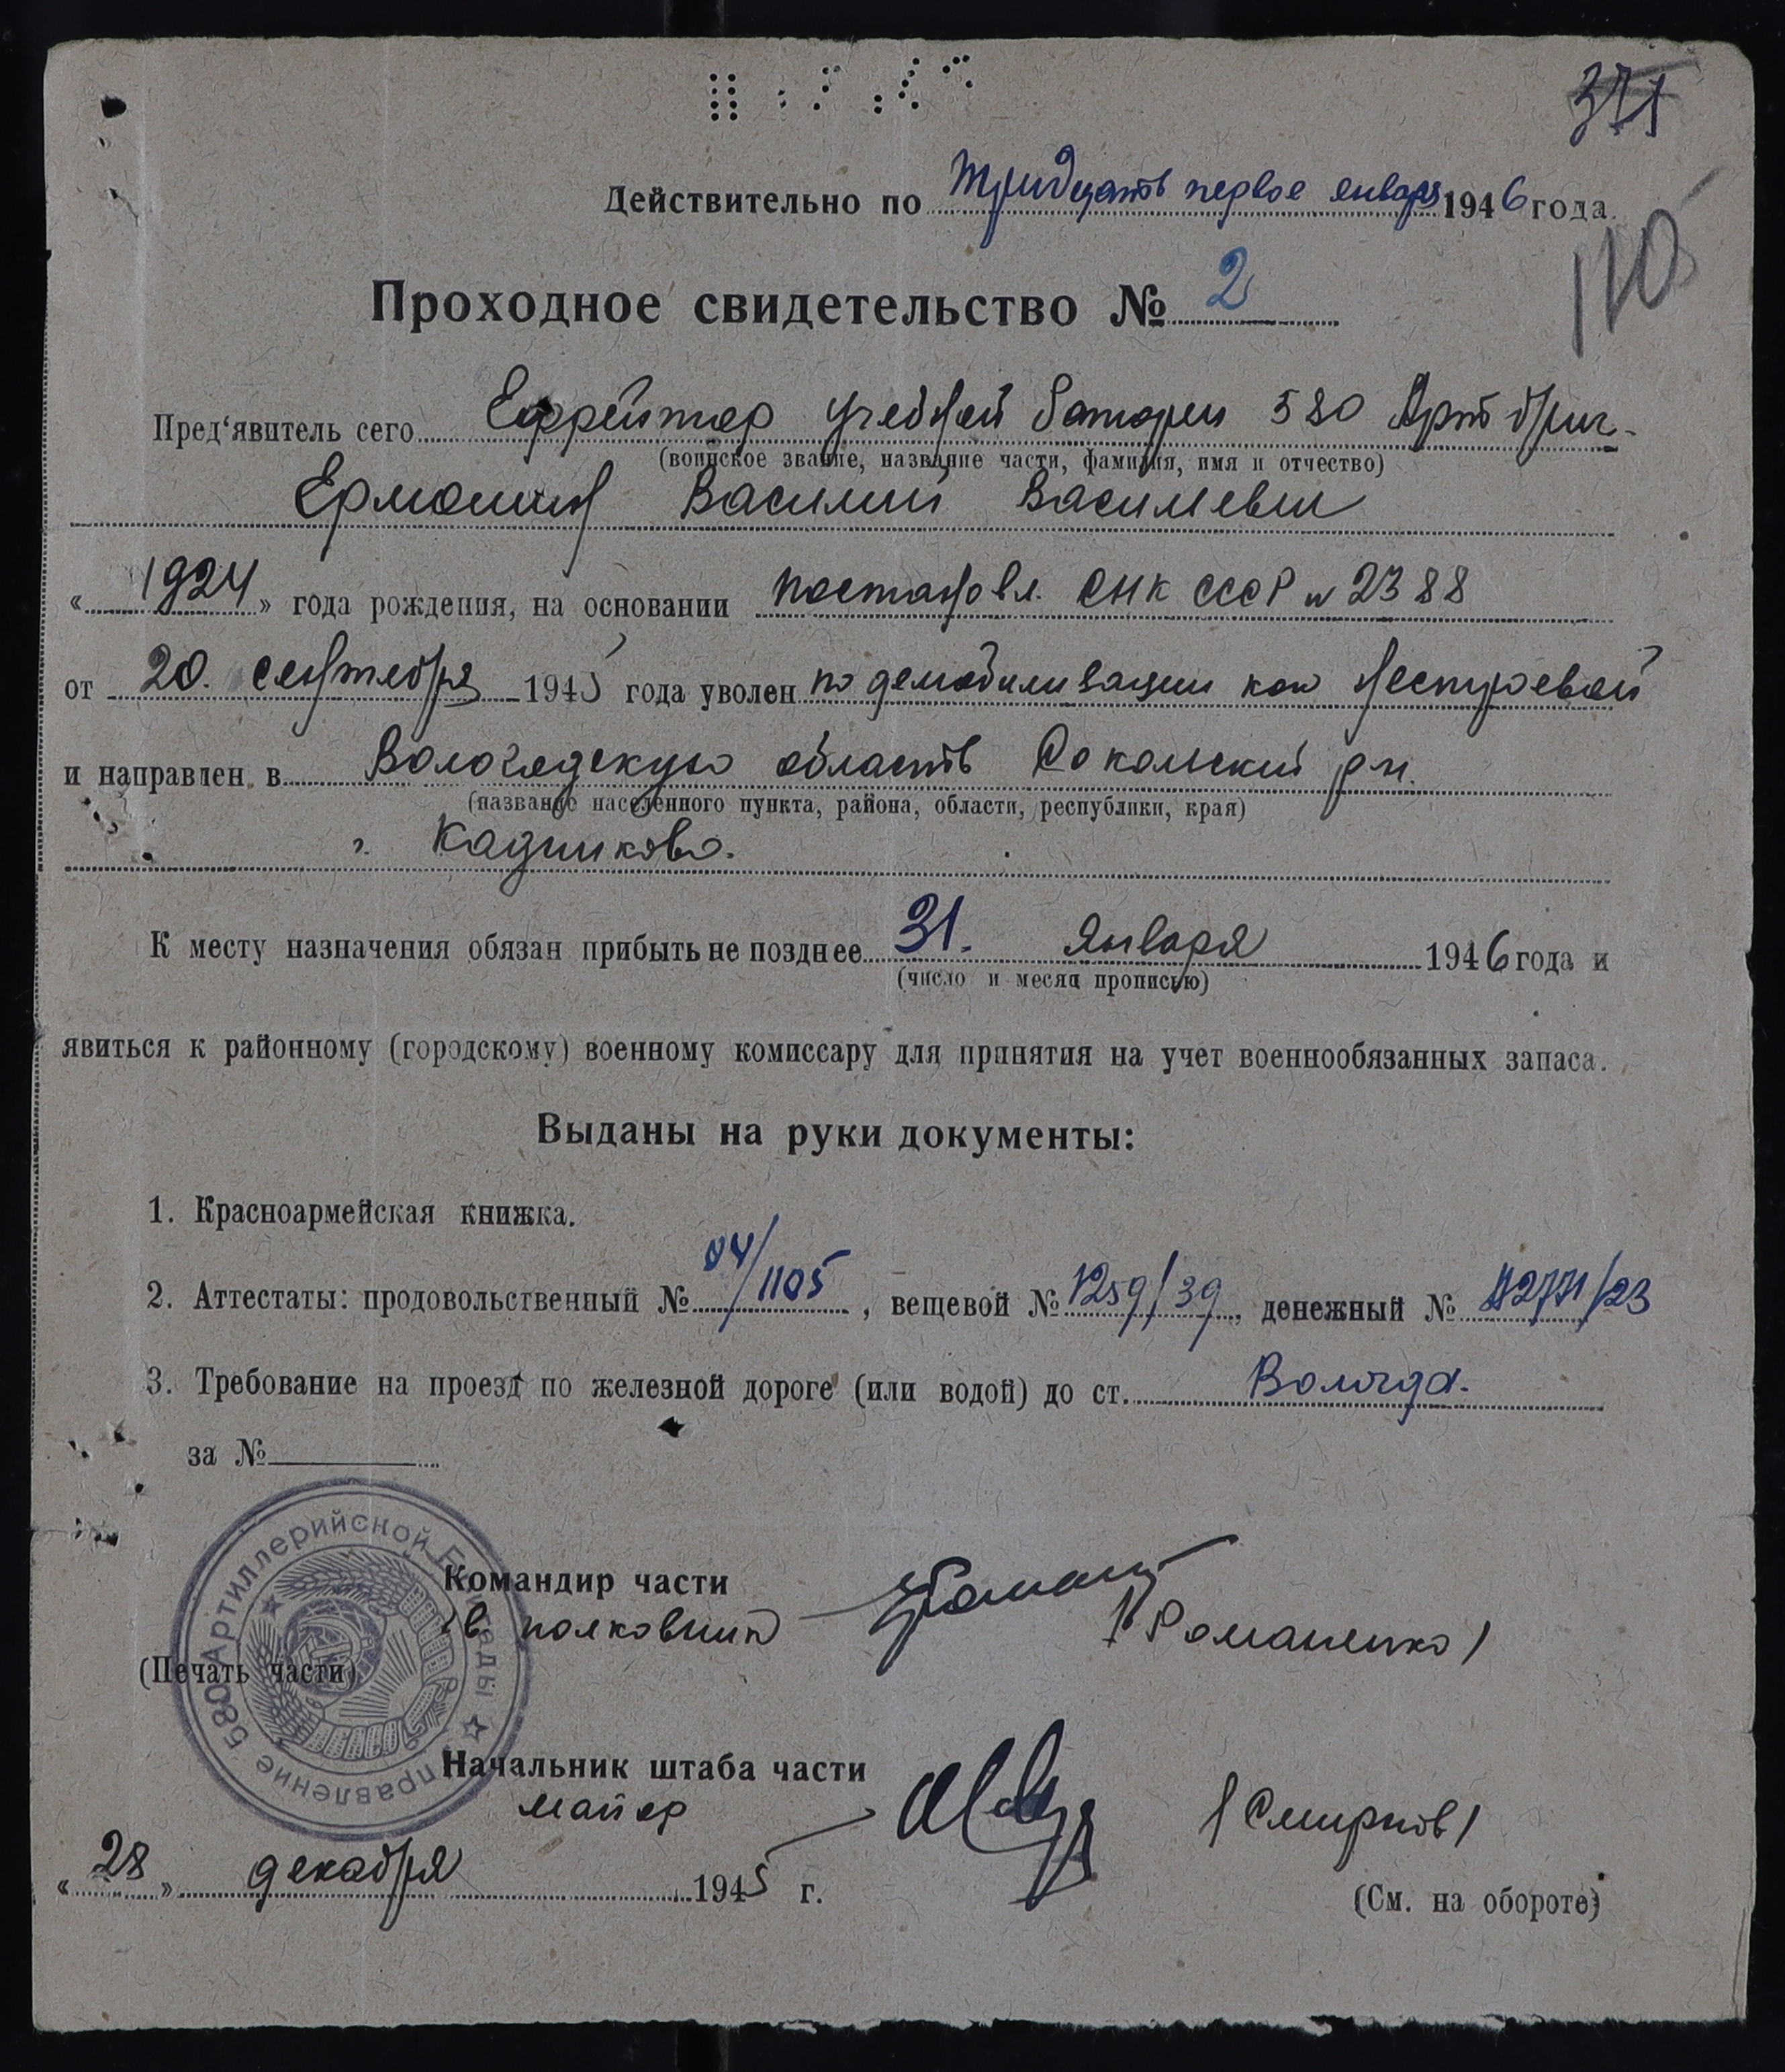 371
Действительно по тридцать первое января 1946 года.
110
Проходное свидетельство № 2
Пред‘явитель сего Ефрейтор учебной батареи 580 Арт бриг.
(воинское звание, название части, фамилия, имя и отчество)
Ермошин Василий Василевич
« 1924 » года рождения, на основании постановл. СНК СССР № 2388
от 20. сентября 1945 года уволен по демобилизации как нестроевой
и направлен в Вологодскую область Сокольский р-н.
(название населенного пункта, района, области, республики, края)
г. Кадников.
К месту назначения обязан прибыть не позднее 31. января 1946 года и
(число и месяц прописью)
явиться к районному (городскому) военному комиссару для принятия на учет военнообязанных запаса.
Выданы на руки документы:
1. Красноармейская книжка.
2. Аттестаты: продовольственный № 04/1105, вещевой № 1259/39, денежный №
3. Требование на проезд по железной дороге (или водой) до ст. Вологда.
за №
Управление 580 Артиллерийской Бригады
Командир части
гв. полковник /Романенко/
(Печать части)
Начальник штаба части
майор /Смирнов/
« 28 » декабря 1945 г.
(См. на обороте)